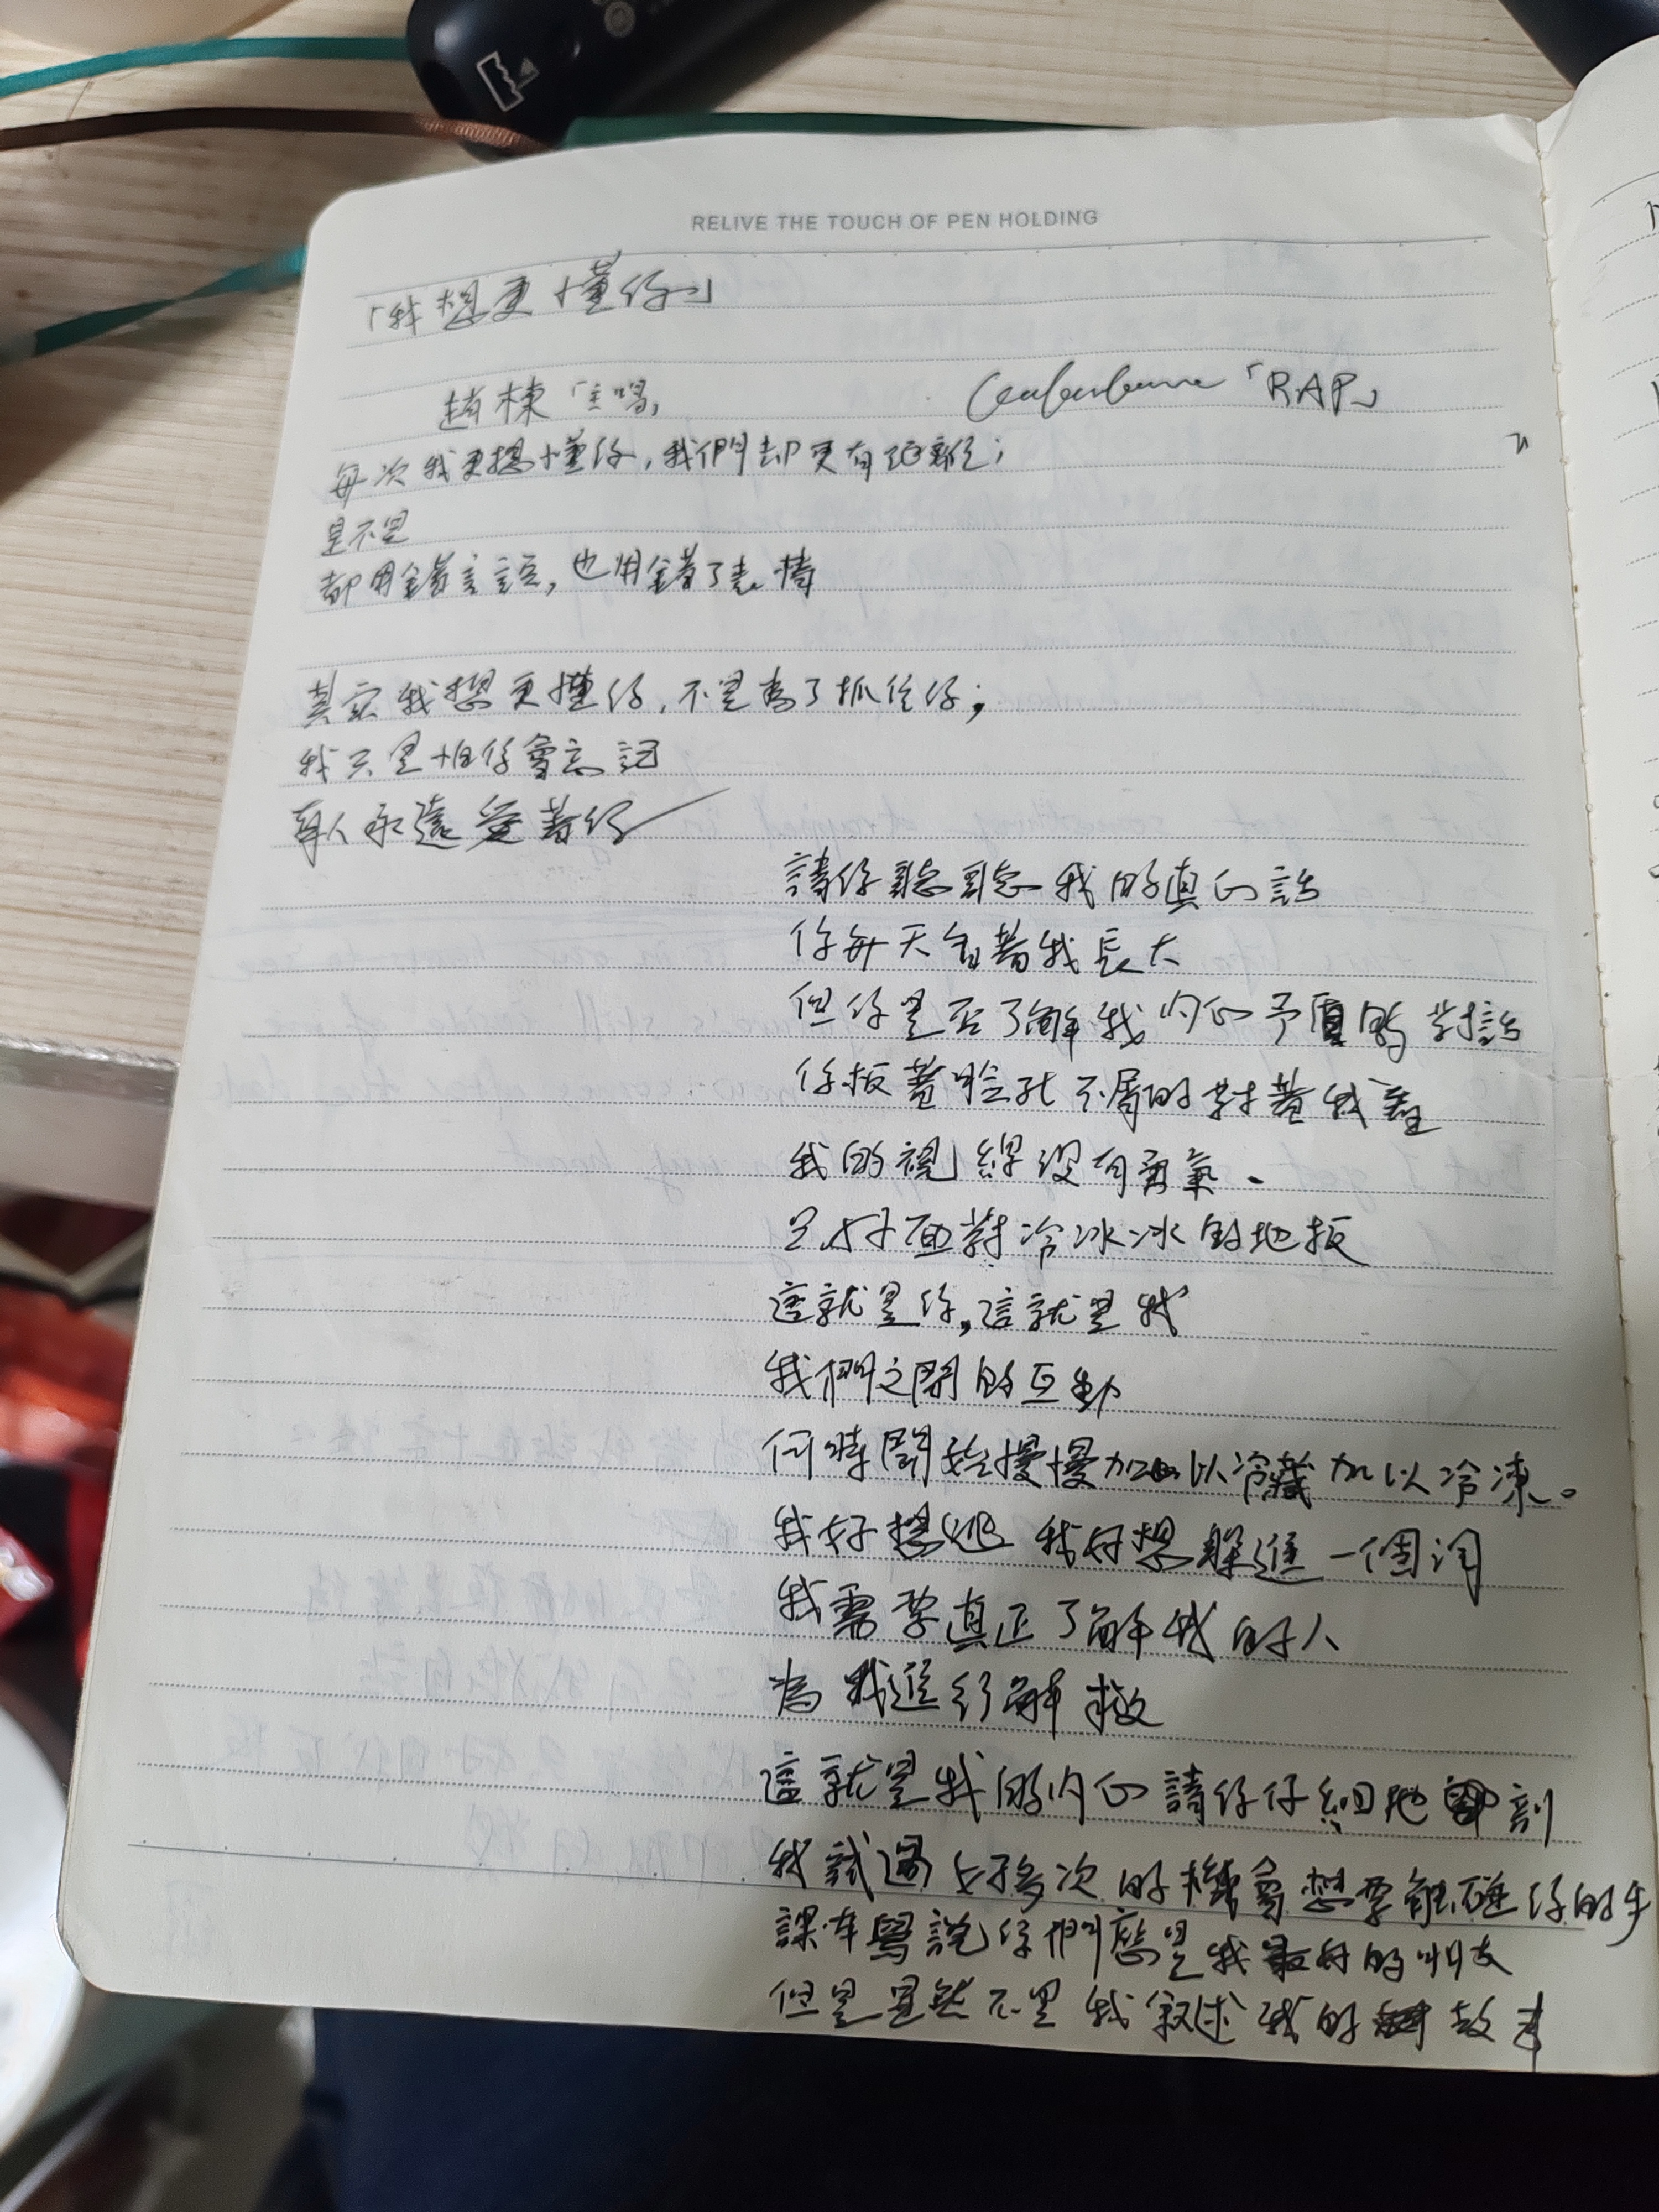 RELIVE THE TOUCH OF PEN HOLDING
「我想更懂你」
趙棟「主唱」
「RAP」
每次我更想懂你，我們却更有距離；
是不是
都用錯言語，也用錯了表情
其实我想更懂你，不是為了抓住你；
我只是怕你會忘記
有人永遠愛著你
請你聽聽我的真心話
你每天看著我長大
但你是否了解我内心矛盾的對話
你板著臉孔不屑的對著我看
我的視線没有勇氣
只好面對冷冰冰的地板
這就是你，這就是我
我們之間的互動
何時開始慢慢加以冷藏加以冷凍。
我好想逃 我好想躲進一個洞
我需要真正了解我的人
為我進行解救
這就是我的内心請你仔細地剖
我試過好多次的機會想要能碰你的手
課本學說你們應是我最好的朋友
但是显然不是我叙述我的故事